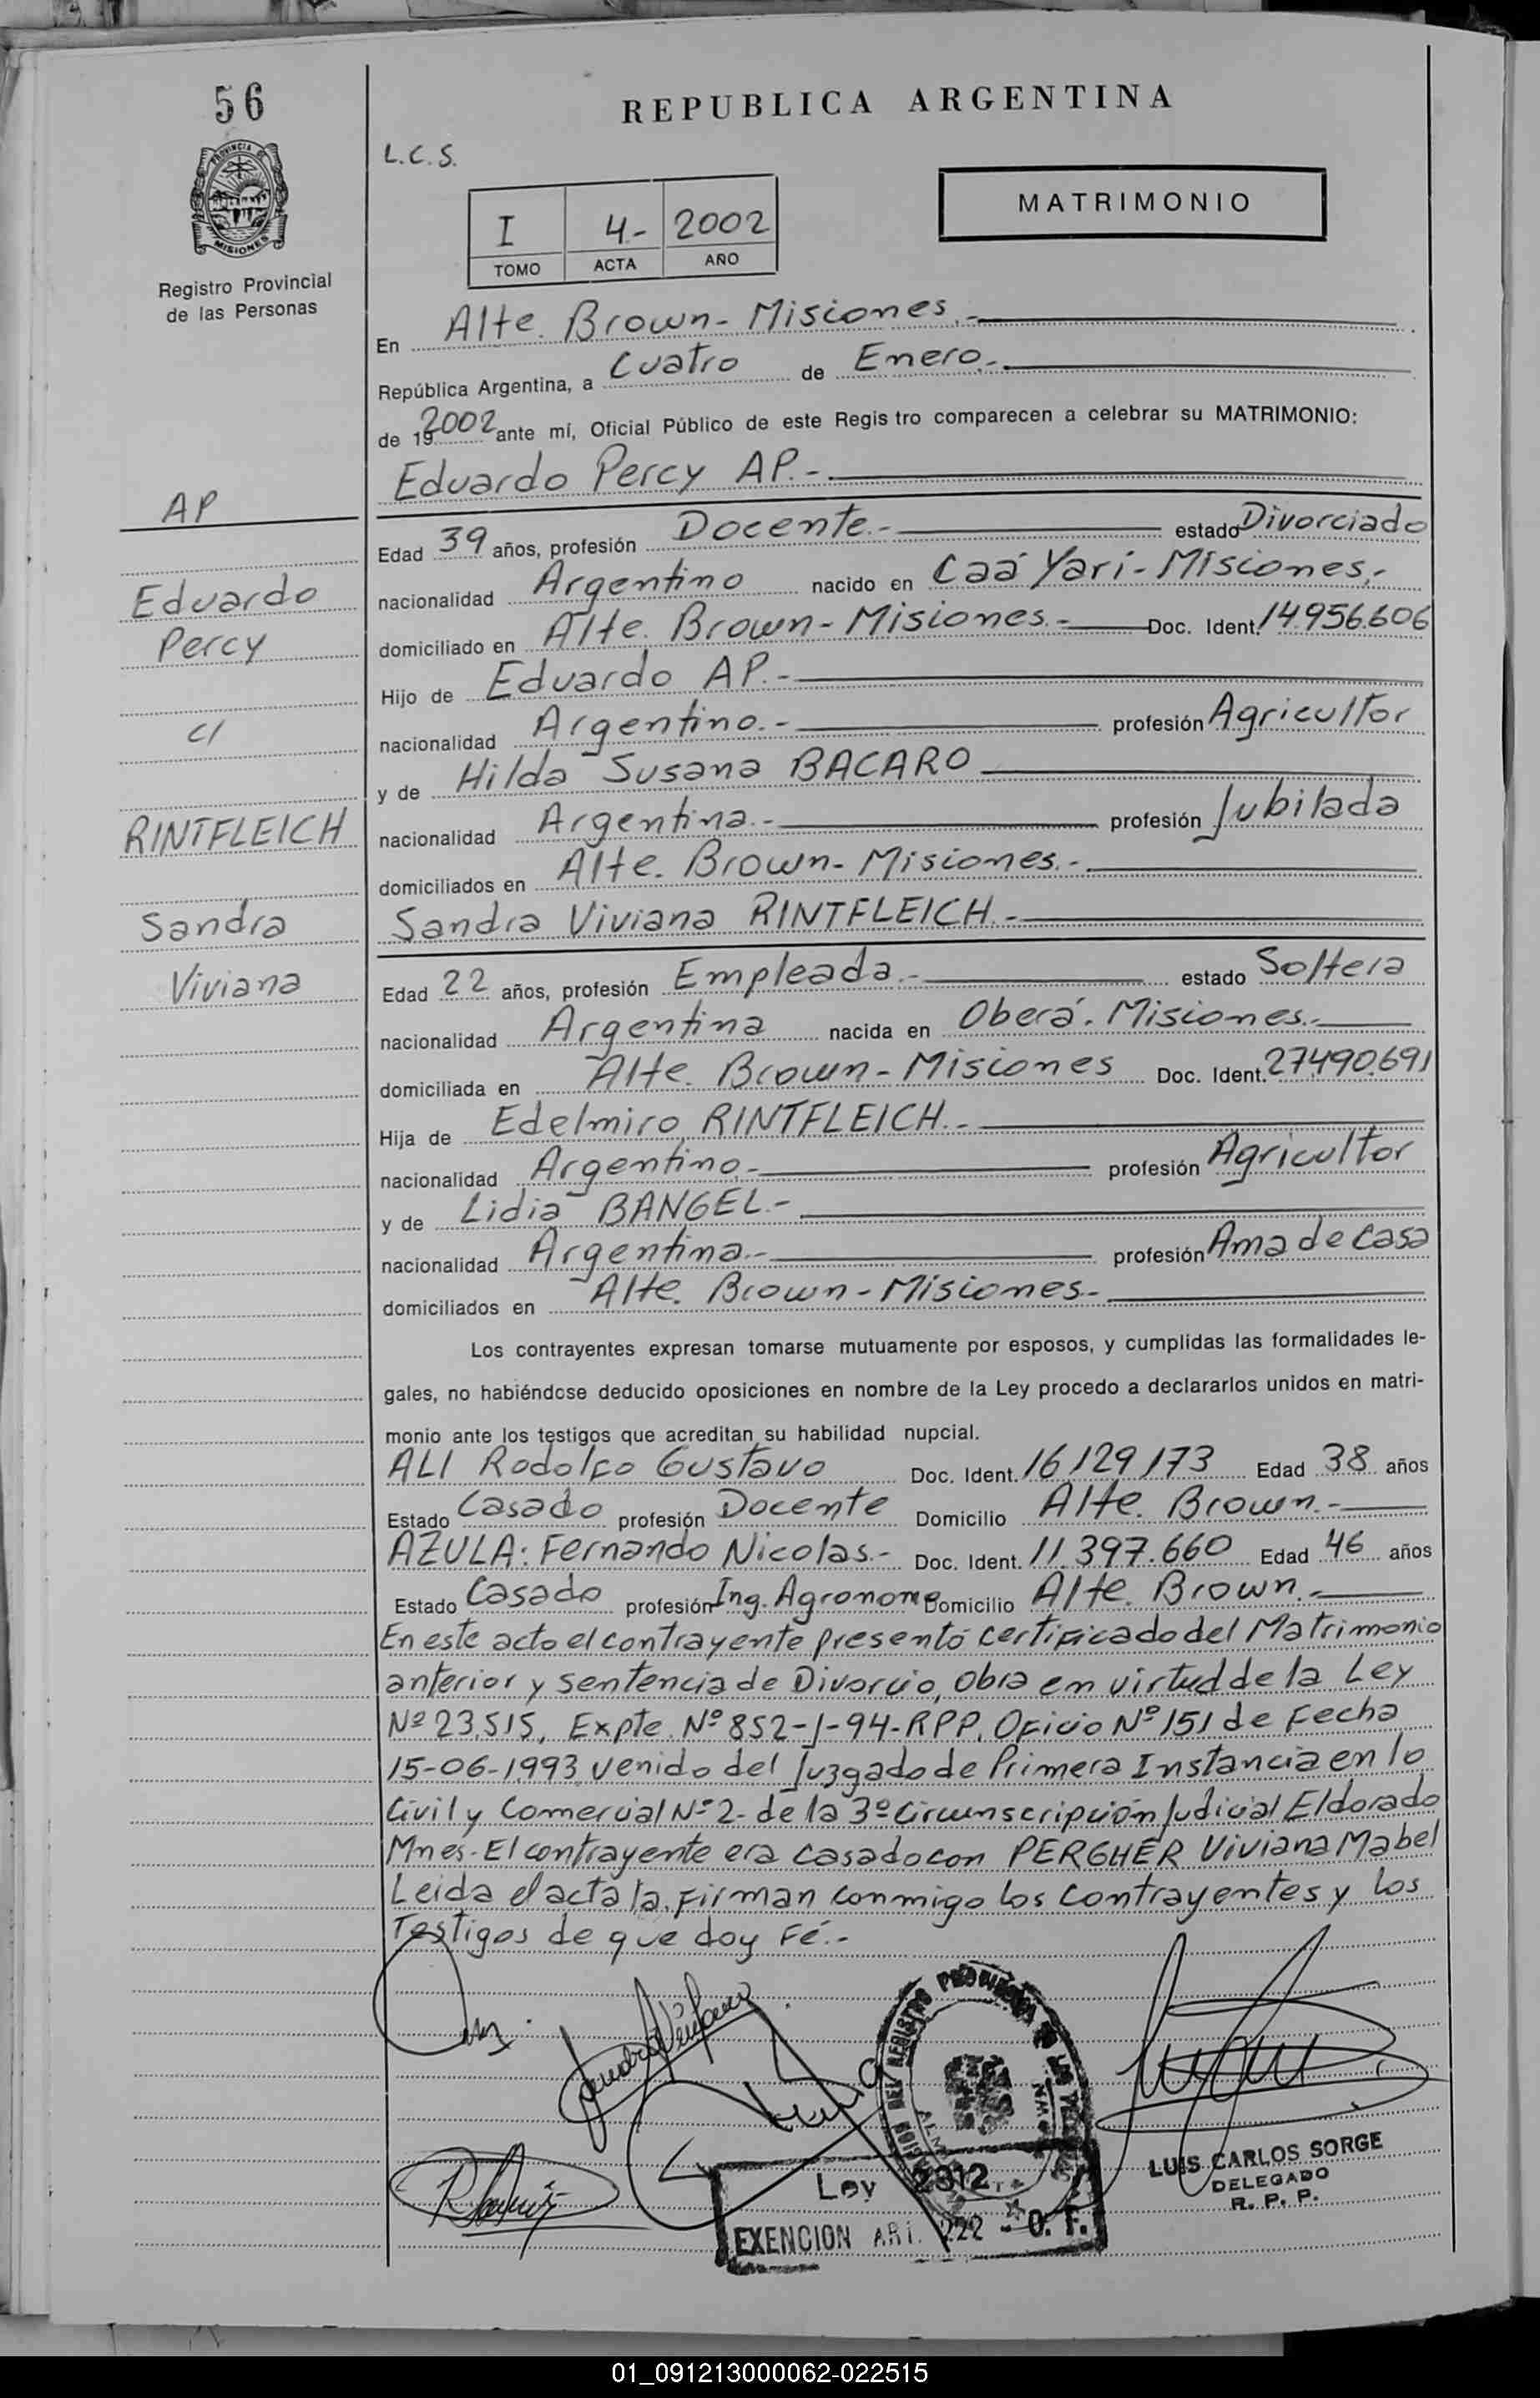 56
PROVINCIA
MISIONES
Registro Provincial
de las Personas
REPUBLICA ARGENTINA
L.C.S.
MATRIMONIO
I 4.- 2002
TOMO ACTA AÑO
En Alte. Brown - Misiones.-
República Argentina, a Cuatro de Enero.-
de 19 2002 ante mí, Oficial Público de este Regis tro comparecen a celebrar su MATRIMONIO:
Eduardo Percy AP.-
AP
Edad 39 años, profesión Docente.- estado Divorciado
Eduardo
nacionalidad Argentino nacido en Caá Yarí - Misiones.-
Percy
domiciliado en Alte. Brown - Misiones.- Doc. Ident. 14.956.606
Hijo de Eduardo AP.-
c/
nacionalidad Argentino.- profesión Agricultor
y de Hilda Susana BACARO
RINTFLEICH
nacionalidad Argentina.- profesión Jubilada
domiciliados en Alte. Brown - Misiones.-
Sandra
Sandra Viviana RINTFLEICH.-
Viviana
Edad 22 años, profesión Empleada.- estado Soltera
nacionalidad Argentina nacida en Oberá. Misiones.-
domiciliada en Alte. Brown - Misiones Doc. Ident. 27.490.691
Hija de Edelmiro RINTFLEICH.-
nacionalidad Argentino.- profesión Agricultor
y de Lidia BANGEL.-
nacionalidad Argentina.- profesión Ama de Casa
domiciliados en Alte. Brown - Misiones.-
Los contrayentes expresan tomarse mutuamente por esposos, y cumplidas las formalidades le-
gales, no habiéndose deducido oposiciones en nombre de la Ley procedo a declararlos unidos en matri-
monio ante los testigos que acreditan su habilidad nupcial.
ALI Rodolfo Gustavo Doc. Ident. 16.129.173 Edad 38 años
Estado Casado profesión Docente Domicilio Alte. Brown.-
AZULA: Fernando Nicolas.- Doc. Ident. 11.397.660 Edad 46 años
Estado Casado profesión Ing. Agronomo Domicilio Alte. Brown.-
En este acto el contrayente presentó certificado del Matrimonio
anterior y sentencia de Divorcio, obra en virtud de la Ley
Nº 23.515, Expte. Nº 852-J-94-RPP. Oficio Nº 151 de Fecha
15-06-1993 venido del Juzgado de Primera Instancia en lo
Civil y Comercial Nº 2- de la 3º Circunscripción Judicial Eldorado
Mnes. El contrayente era casado con PERGHER Viviana Mabel
Leida el acta la firman conmigo los contrayentes y los
Testigos de que doy Fé.-
Ley 2312
EXENCION ART. 222 - O. F.
LUIS CARLOS SORGE
DELEGADO
R. P. P.
01_091213000062-022515